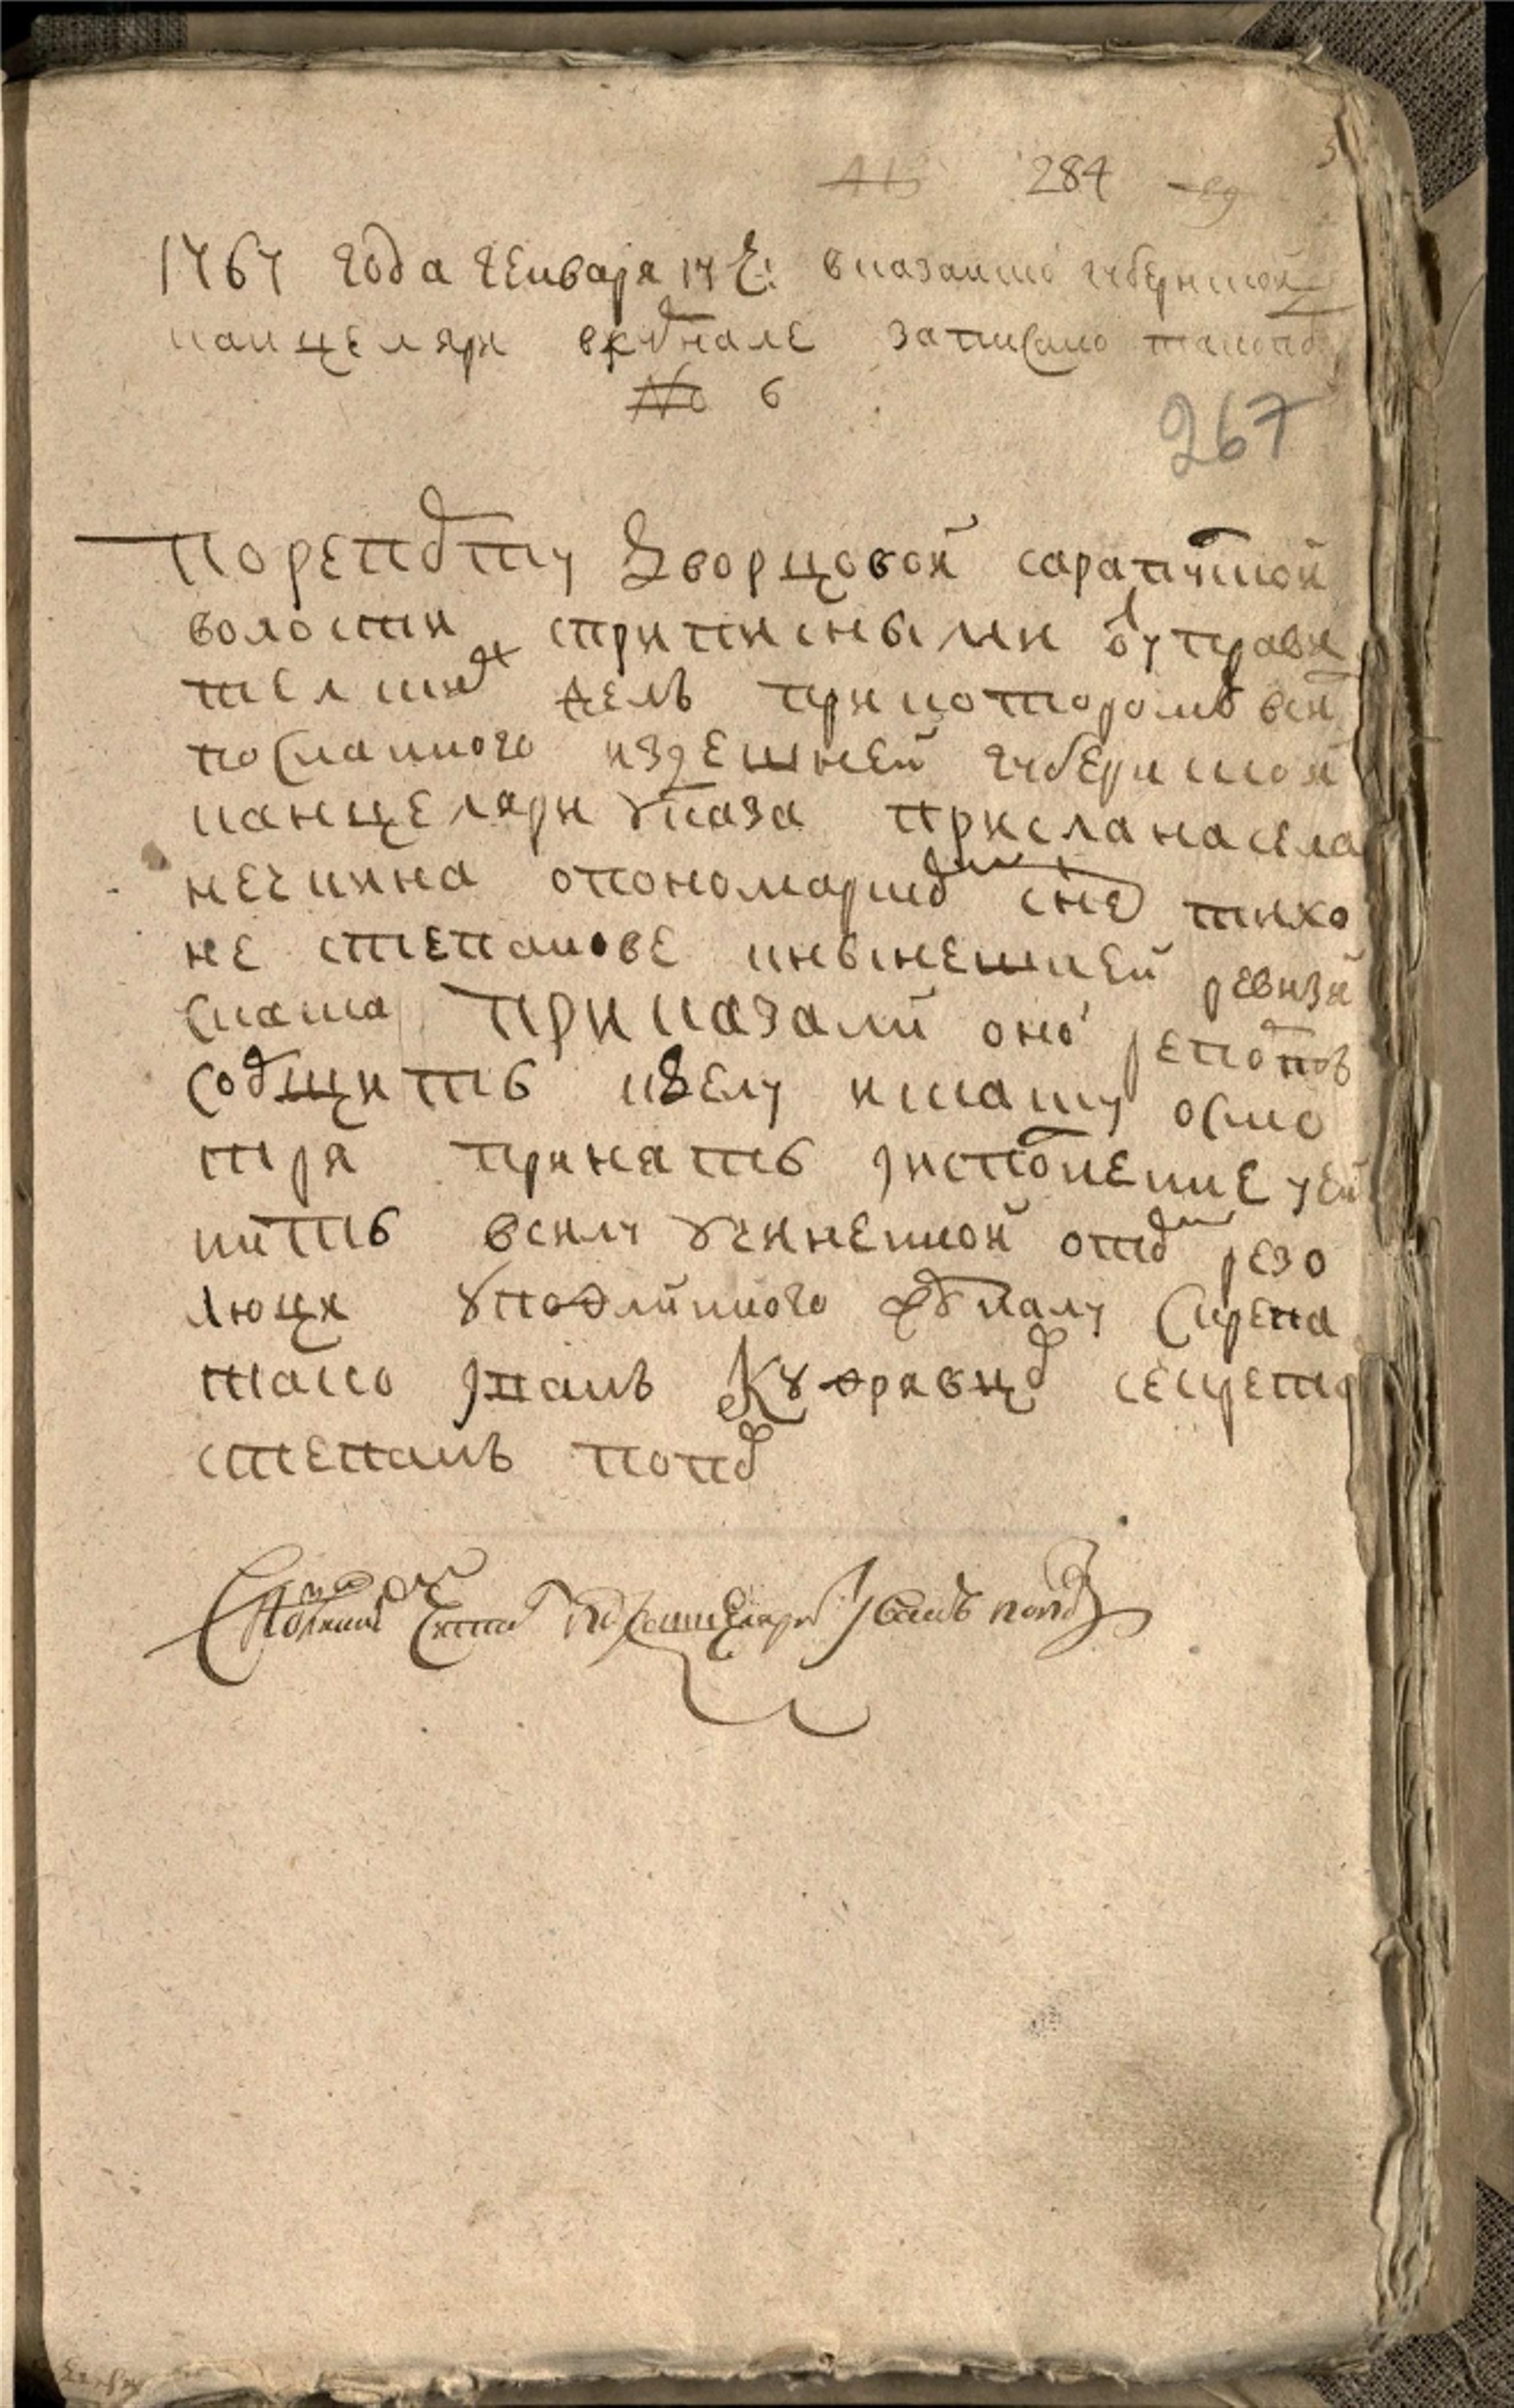 284
1767 года генваря 17 ч: в казанской губернской
канцеляри в журнале записано такопо
№ 6
267
По репорту дворцовой сарапулской
волости с приписными у управи
телских дел при котором в силу
посланного из здешней губернской
канцеляри указа прислана села
нечкина о пономарском сне тихо
не степанове и нынешней ревизи
скаска Приказали оной репортъ
сообщить к делу и скаску осмо
тря принять и исполнение учи
нить в силу учиненной о том резо
люци у подлинного журналу скрепа
тако иван Кудрявцов секретарь
степанъ попов
иванъ поповъ